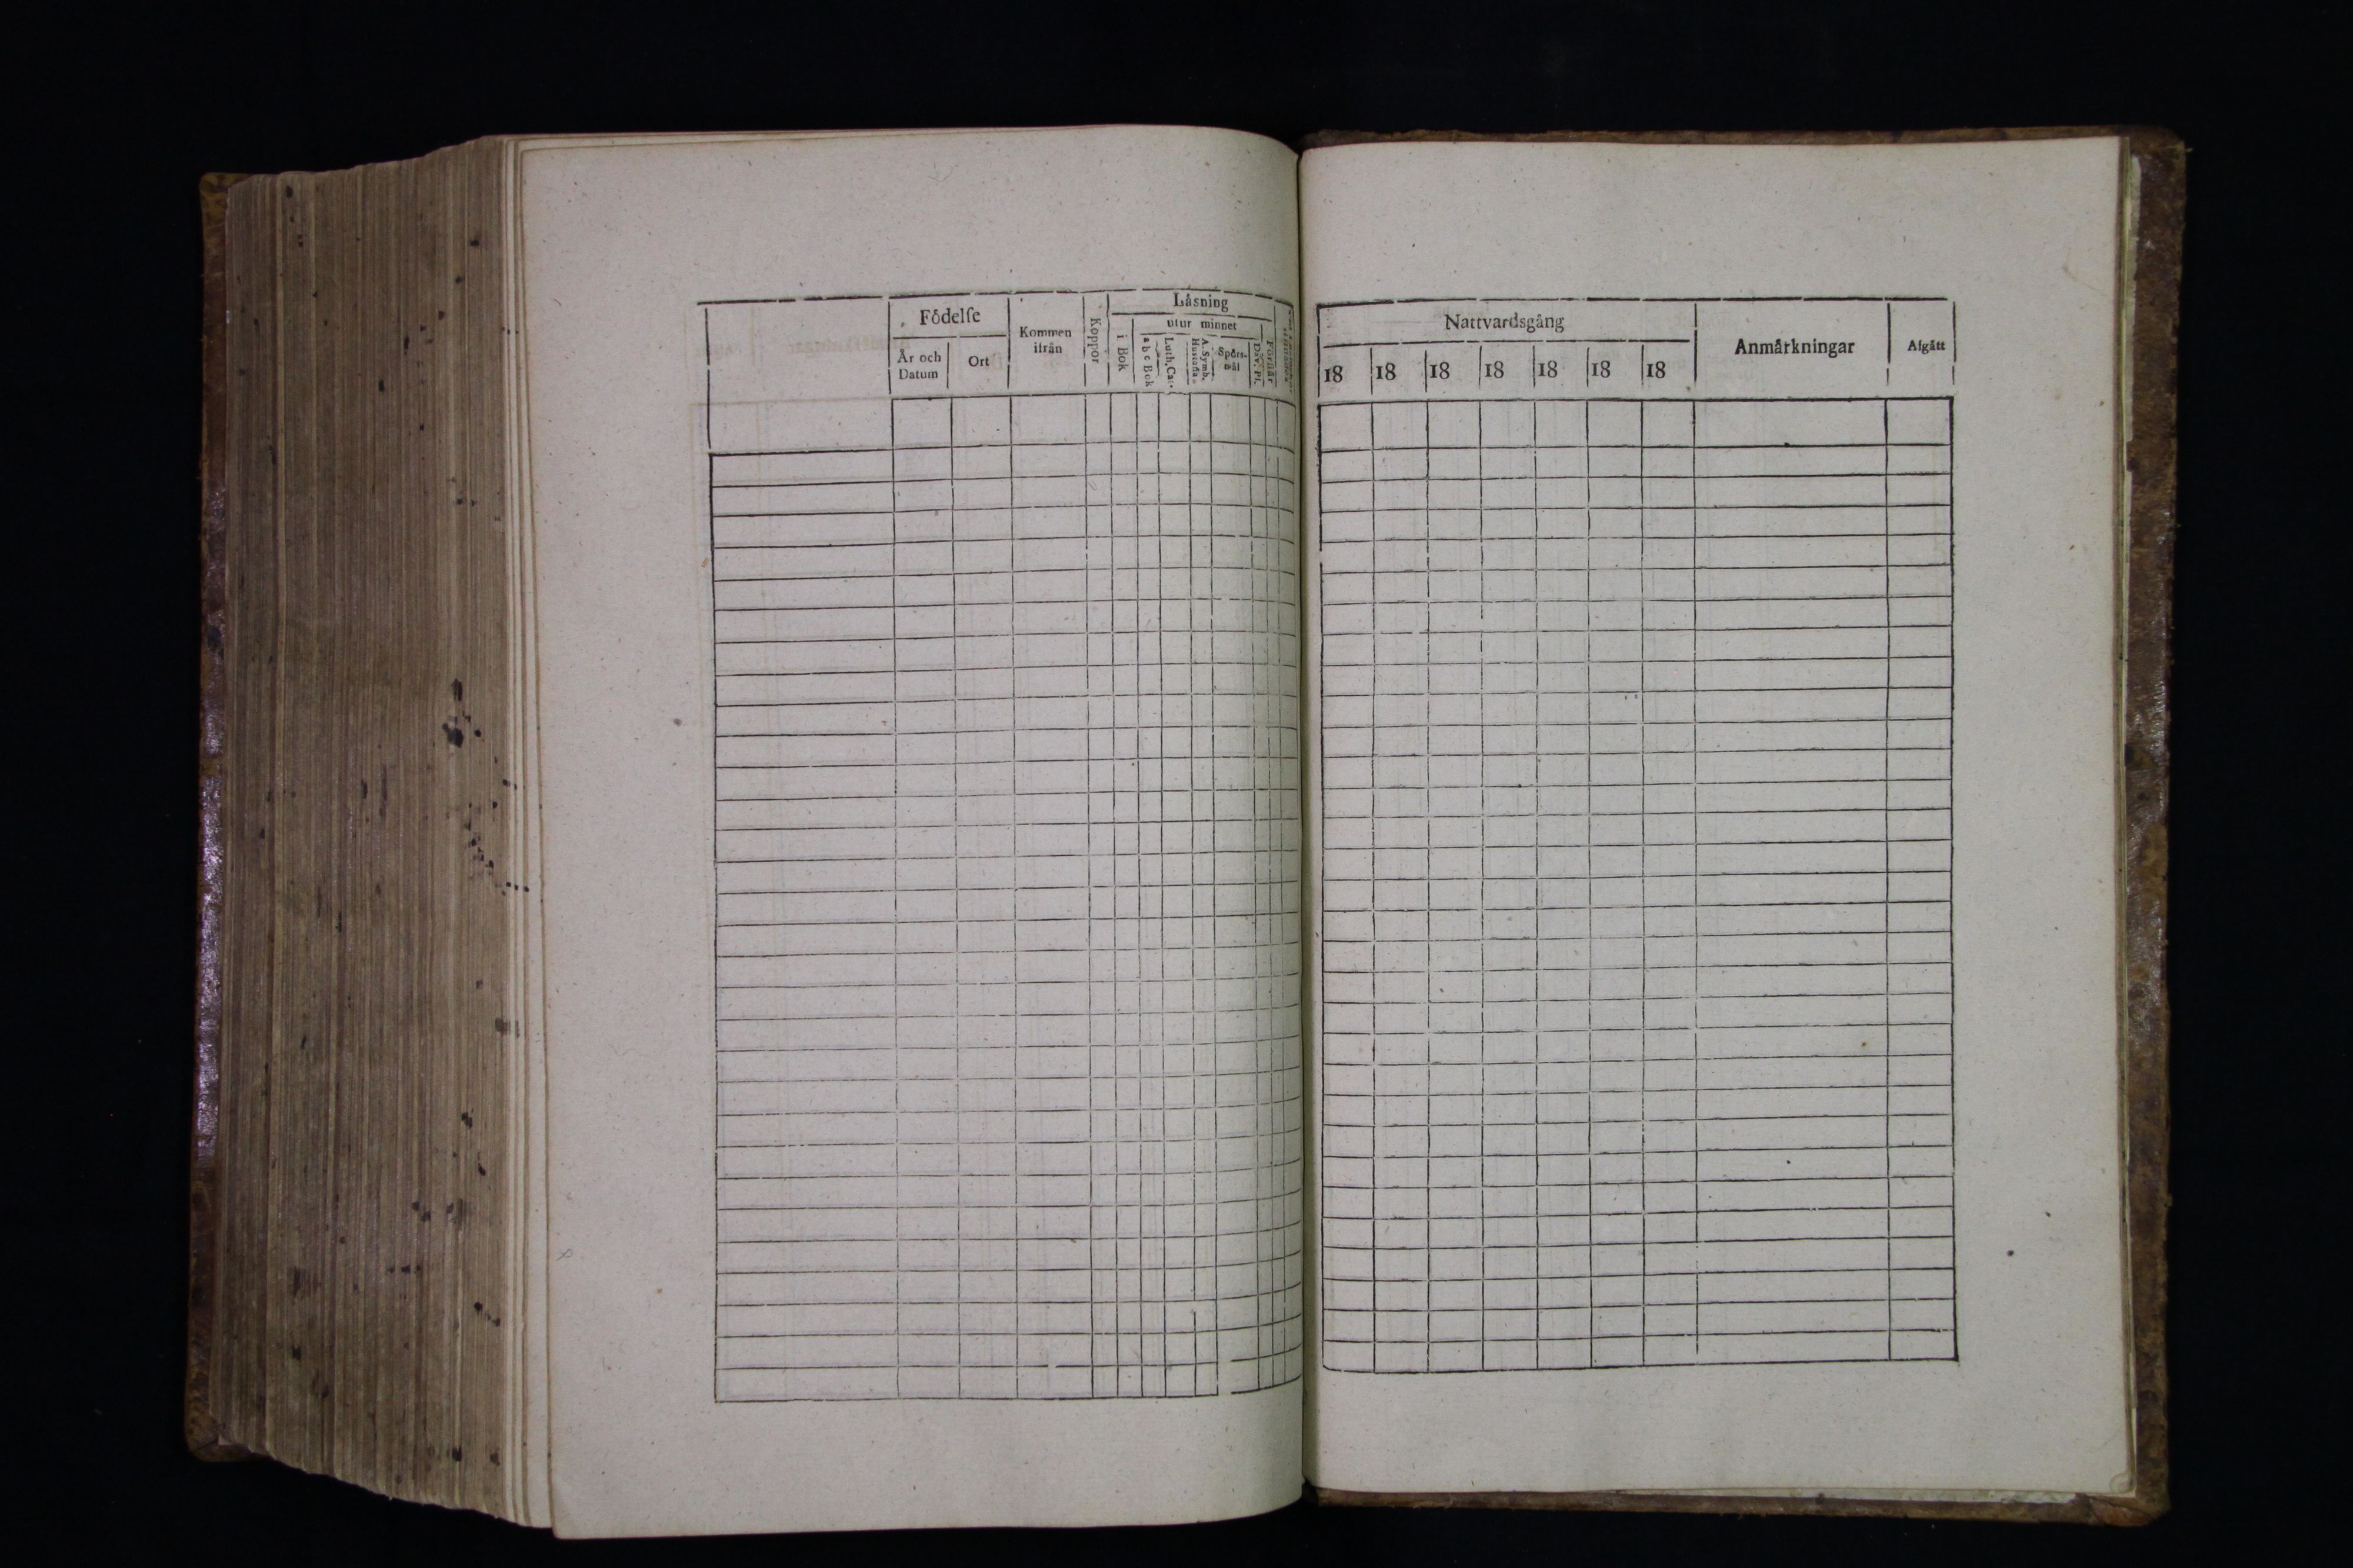 Födelſe
År och Datum
Ort
Kommen ifrån
Koppor
Läsning
i Bok
utur minnet
a b c Bok
Luth. Cat.
A. Symb. Hustafla
Spörs-mål
Dav. Ps.
Förstår
Nattvardsgång
18 18 18 18 18 18 18
Anmärkningar
Afgått